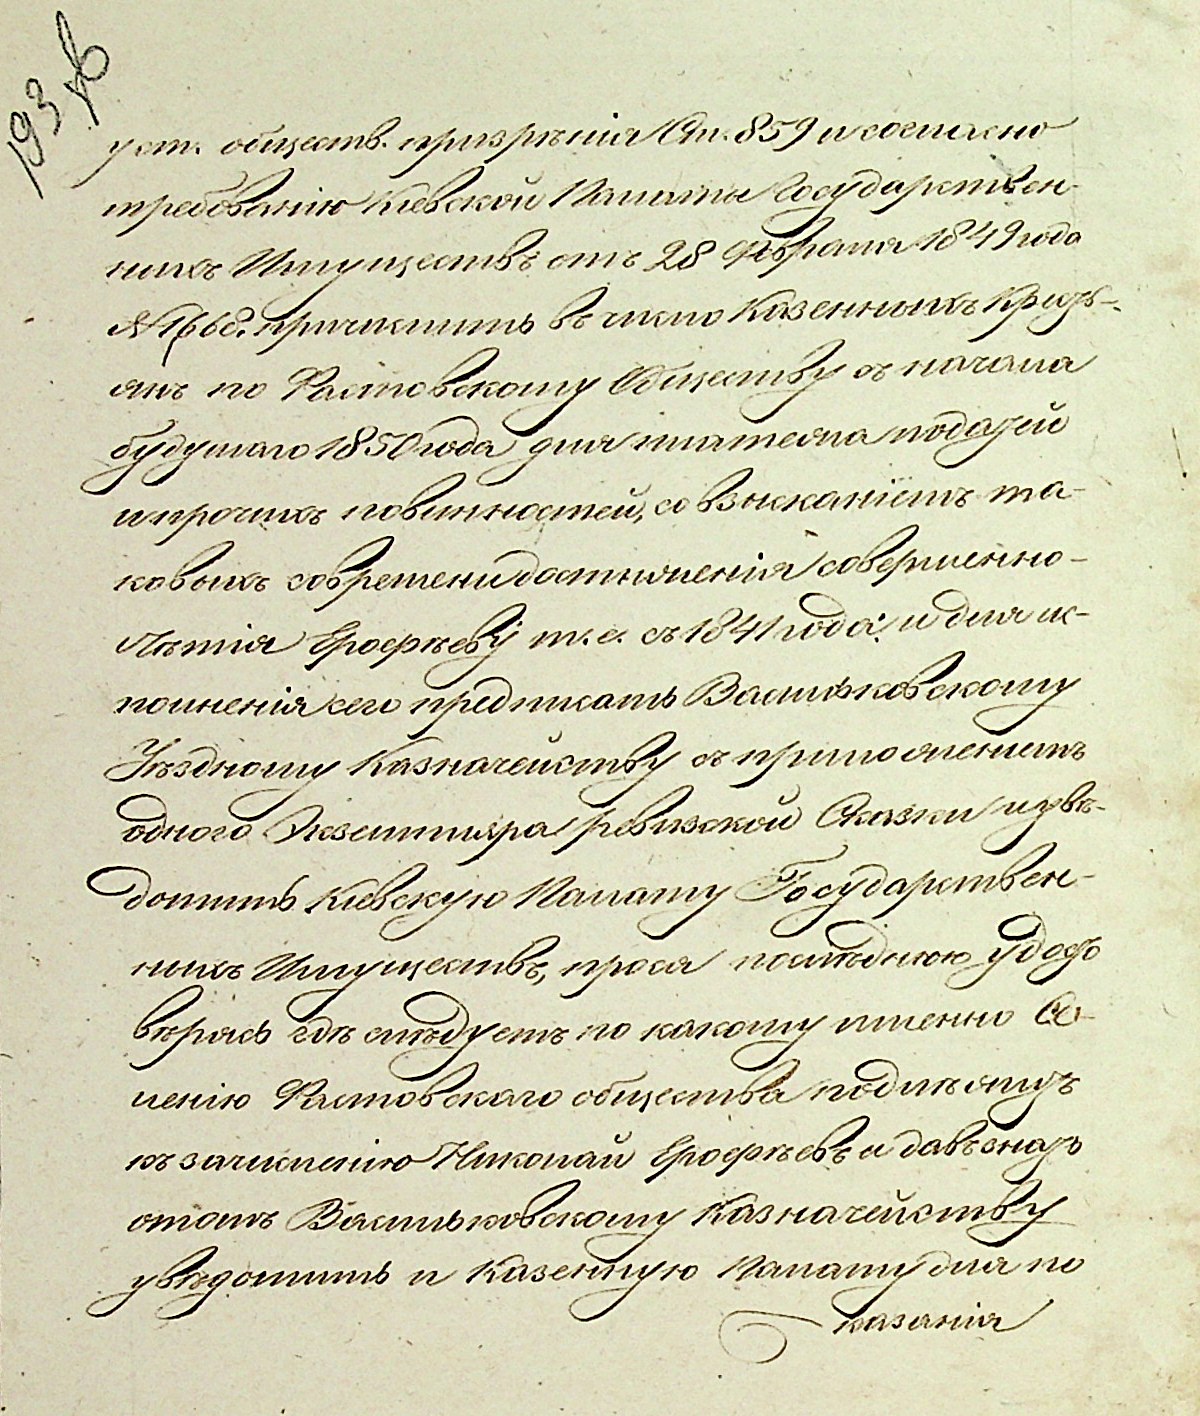 193 об
уст. обществ. призрѣнія Ст. 859 и согласно
требованію Кіевской Палаты Государствен-
ныхъ Имуществъ отъ 28 Февраля 1849 года
№ 1668. причислить въ число Казенныхъ Кресть-
янъ по Фастовскому Обществу съ начала
будущаго 1850 года для платежа податей
и прочихъ повинностей, со взысканіемъ та-
ковыхъ современи достиженія совершенно-
лѣтія Ерофѣеву т. е. съ 1841 года; и для ис-
полненія сего предписать Васильковскому
Уѣздному Казначейству съ приложеніемъ
одного Экземпляра ревизской Сказки и увѣ-
домить Кіевскую Палату Государствен-
ныхъ Имуществъ, прося послѣднюю удосто
вѣрясь гдѣ слѣдуетъ по какому именно Се-
ленію Фастовскаго общества подлежитъ
къ зачисленію Николай Ерофѣевъ и давъ знать
отомъ Васильковскому Казначейству
увѣдомить и Казенную Палату для по
казанія